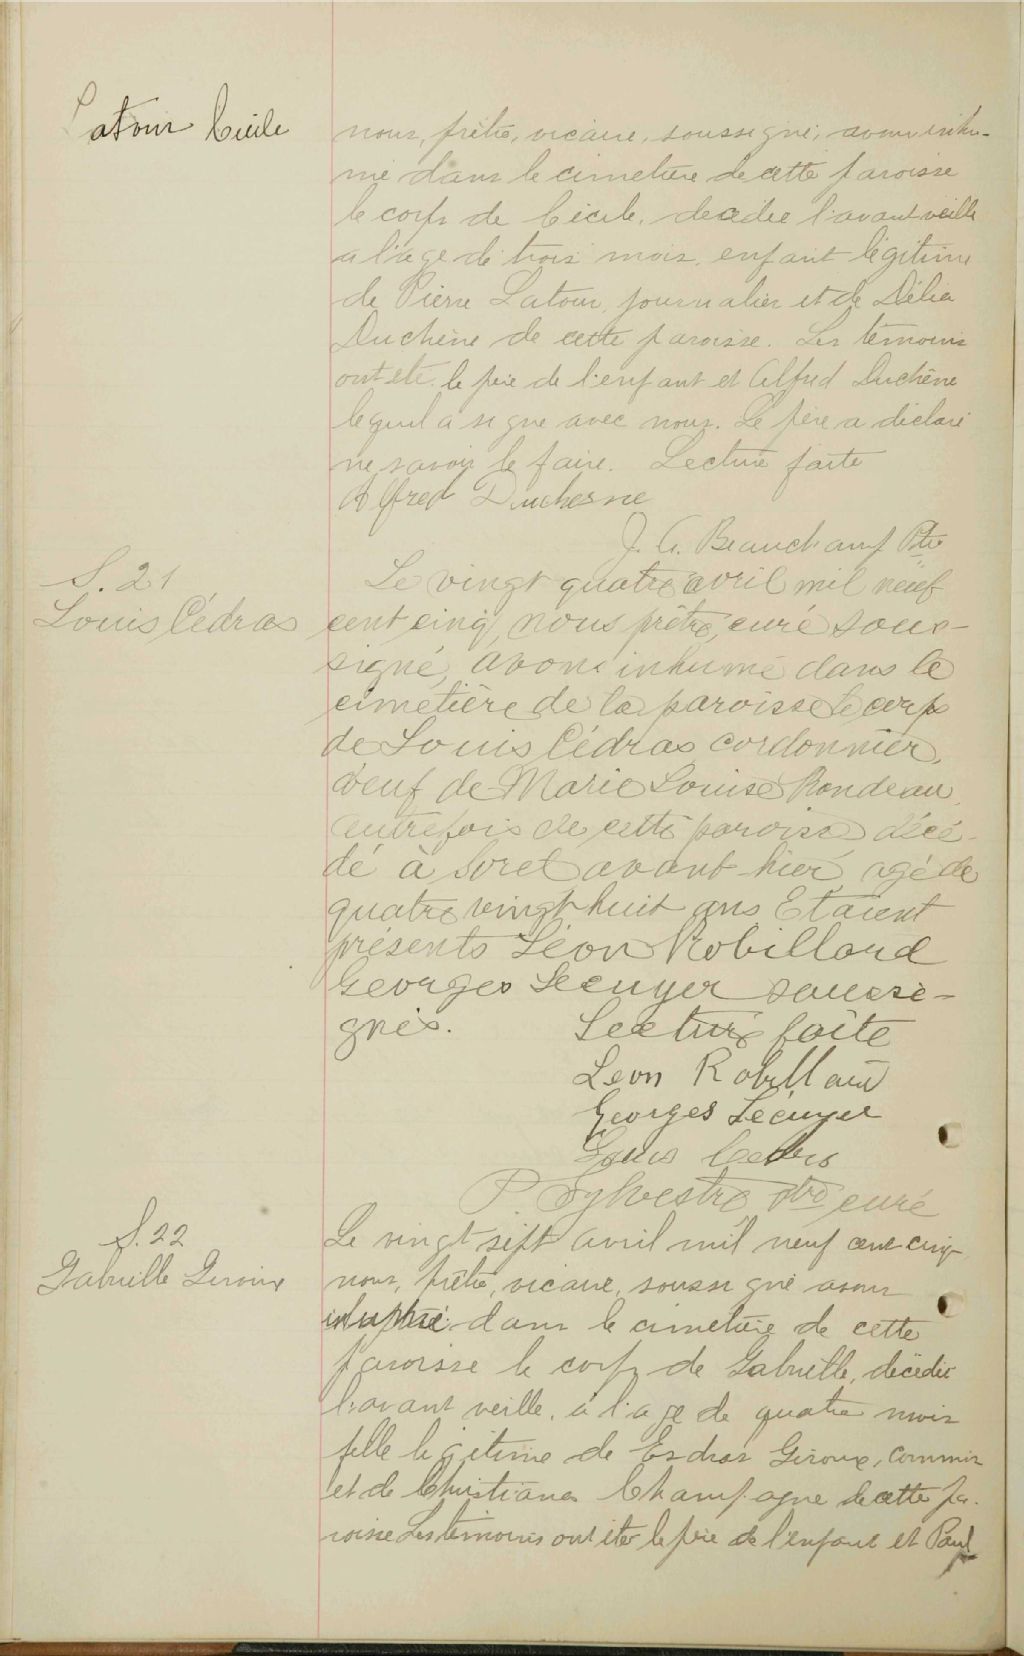 Latour Cécile
nous, prêtre, vicaire, soussigné, avons inhu-
mé dans le cimetière de cette paroisse
le corps de Cécile, décédée l'avant veille
a l'age de trois mois, enfant légitime
de Pierre Latour, journalier et de Délia
Duchêne de cette paroisse. Les témoins
ont été le père de l'enfant et Alfred Duchêne
lequel a signé avec nous. Le père a déclaré
ne savoir le faire. Lecture faite
Alfred Duchesne
J. A. Beauchamp Ptre
S. 21
Louis Cédras
Le vingt quatre avril mil neuf
cent cinq, nous prêtre, curé sous-
signé, avons inhumé dans le
cimetière de la paroisse le corps
de Louis Cédras cordonnier,
veuf de Marie Louise Rondeau,
autrefois de cette paroisse décé-
dé à Sorel avant-hier, agé de
quatre vingt huit ans Etaient
présents Léon Robillard
Georges Lécuyer soussi-
gnés. Lecture faite
Leon Robillard
Georges Lécuyer
Louis Cedras
P. Sylvestre ptre curé
S. 22
Gabrielle Giroux
Le vingt sept avril mil neuf cent cinq
nous, prêtre, vicaire, soussigné avons
inhumé dans le cimetière de cette
paroisse le corps de Gabrielle, décédée
l'avant veille, à l'age de quatre mois
fille légitime de Esdras Giroux, commis
et de Christiana Champagne de cette pa-
roisse Les témoins ont été le père de l'enfant et Paul